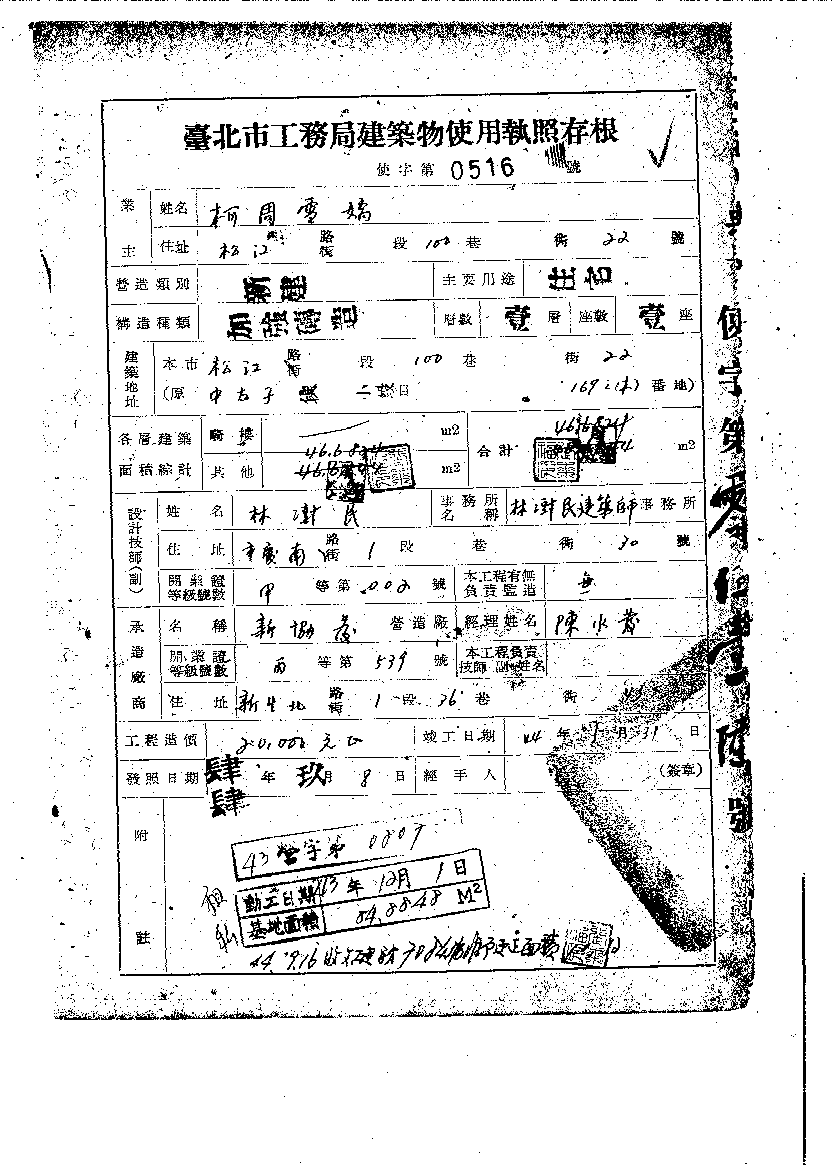 臺北市工務局建築物使用執照存根
使字第 0516 號
業主 姓名 柯周雪嬌
住址 松江 路街 段 100 巷 街 22 號
營造類別 新建 主要用途 住宅
構造種類 加強磚造 層數 壹層 座數 壹座
建築地址 本市 松江 路街 段 100 巷 街 22
(原 中太子 段 二 日 番地)
各層建築面積總計 騎樓 m2 合計 m2
其他 46.6824 m2
設計技師(副) 姓名 林澍民 事務所名稱 林澍民建築師事務所
住址 重慶南 路街 1 段 巷 街 30 號
開業證等級號數 甲 等第 002 號 本工程有無負責監造 無
承造廠商 名稱 新協茂 營造廠 經理姓名 陳水
開業證等級號數 丙 等第 539 號 本工程負責技師 副 姓名
住址 新生北 路街 1 段 36 巷 街
工程造價 20,000 元 竣工日期 44 年 月 31 日
發照日期 肆肆 年 玖 月 8 日 經手人 (簽章)
附註
43營字第 0809
動工日期 43年12月1日
基地面積 84.8848 M²
44.9.16
使字第零伍壹陸號